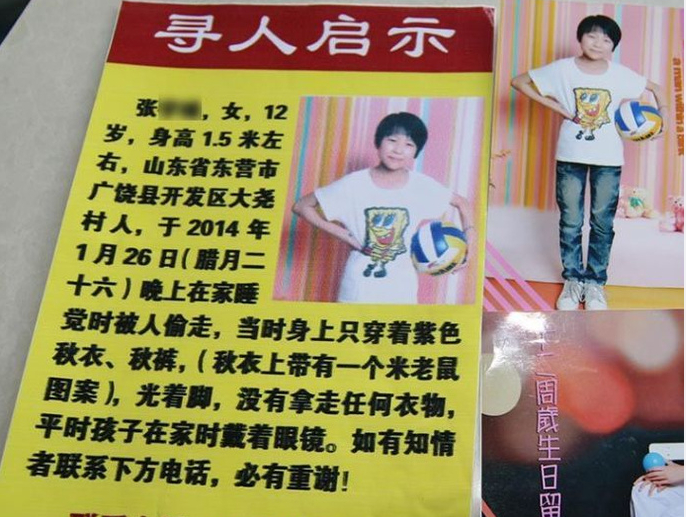 寻人启示
张 ，女，12
岁，身高1.5米左
右，山东省东营市
广饶县开发区大尧
村人，于2014年
1月26日（腊月二
十六）晚上在家睡
觉时被人偷走，当时身上只穿着紫色
秋衣、秋裤，（秋衣上带有一个米老鼠
图案），光着脚，没有拿走任何衣物，
平时孩子在家时戴着眼镜。如有知情
者联系下方电话，必有重谢！
a man within a
十二周歲生日留